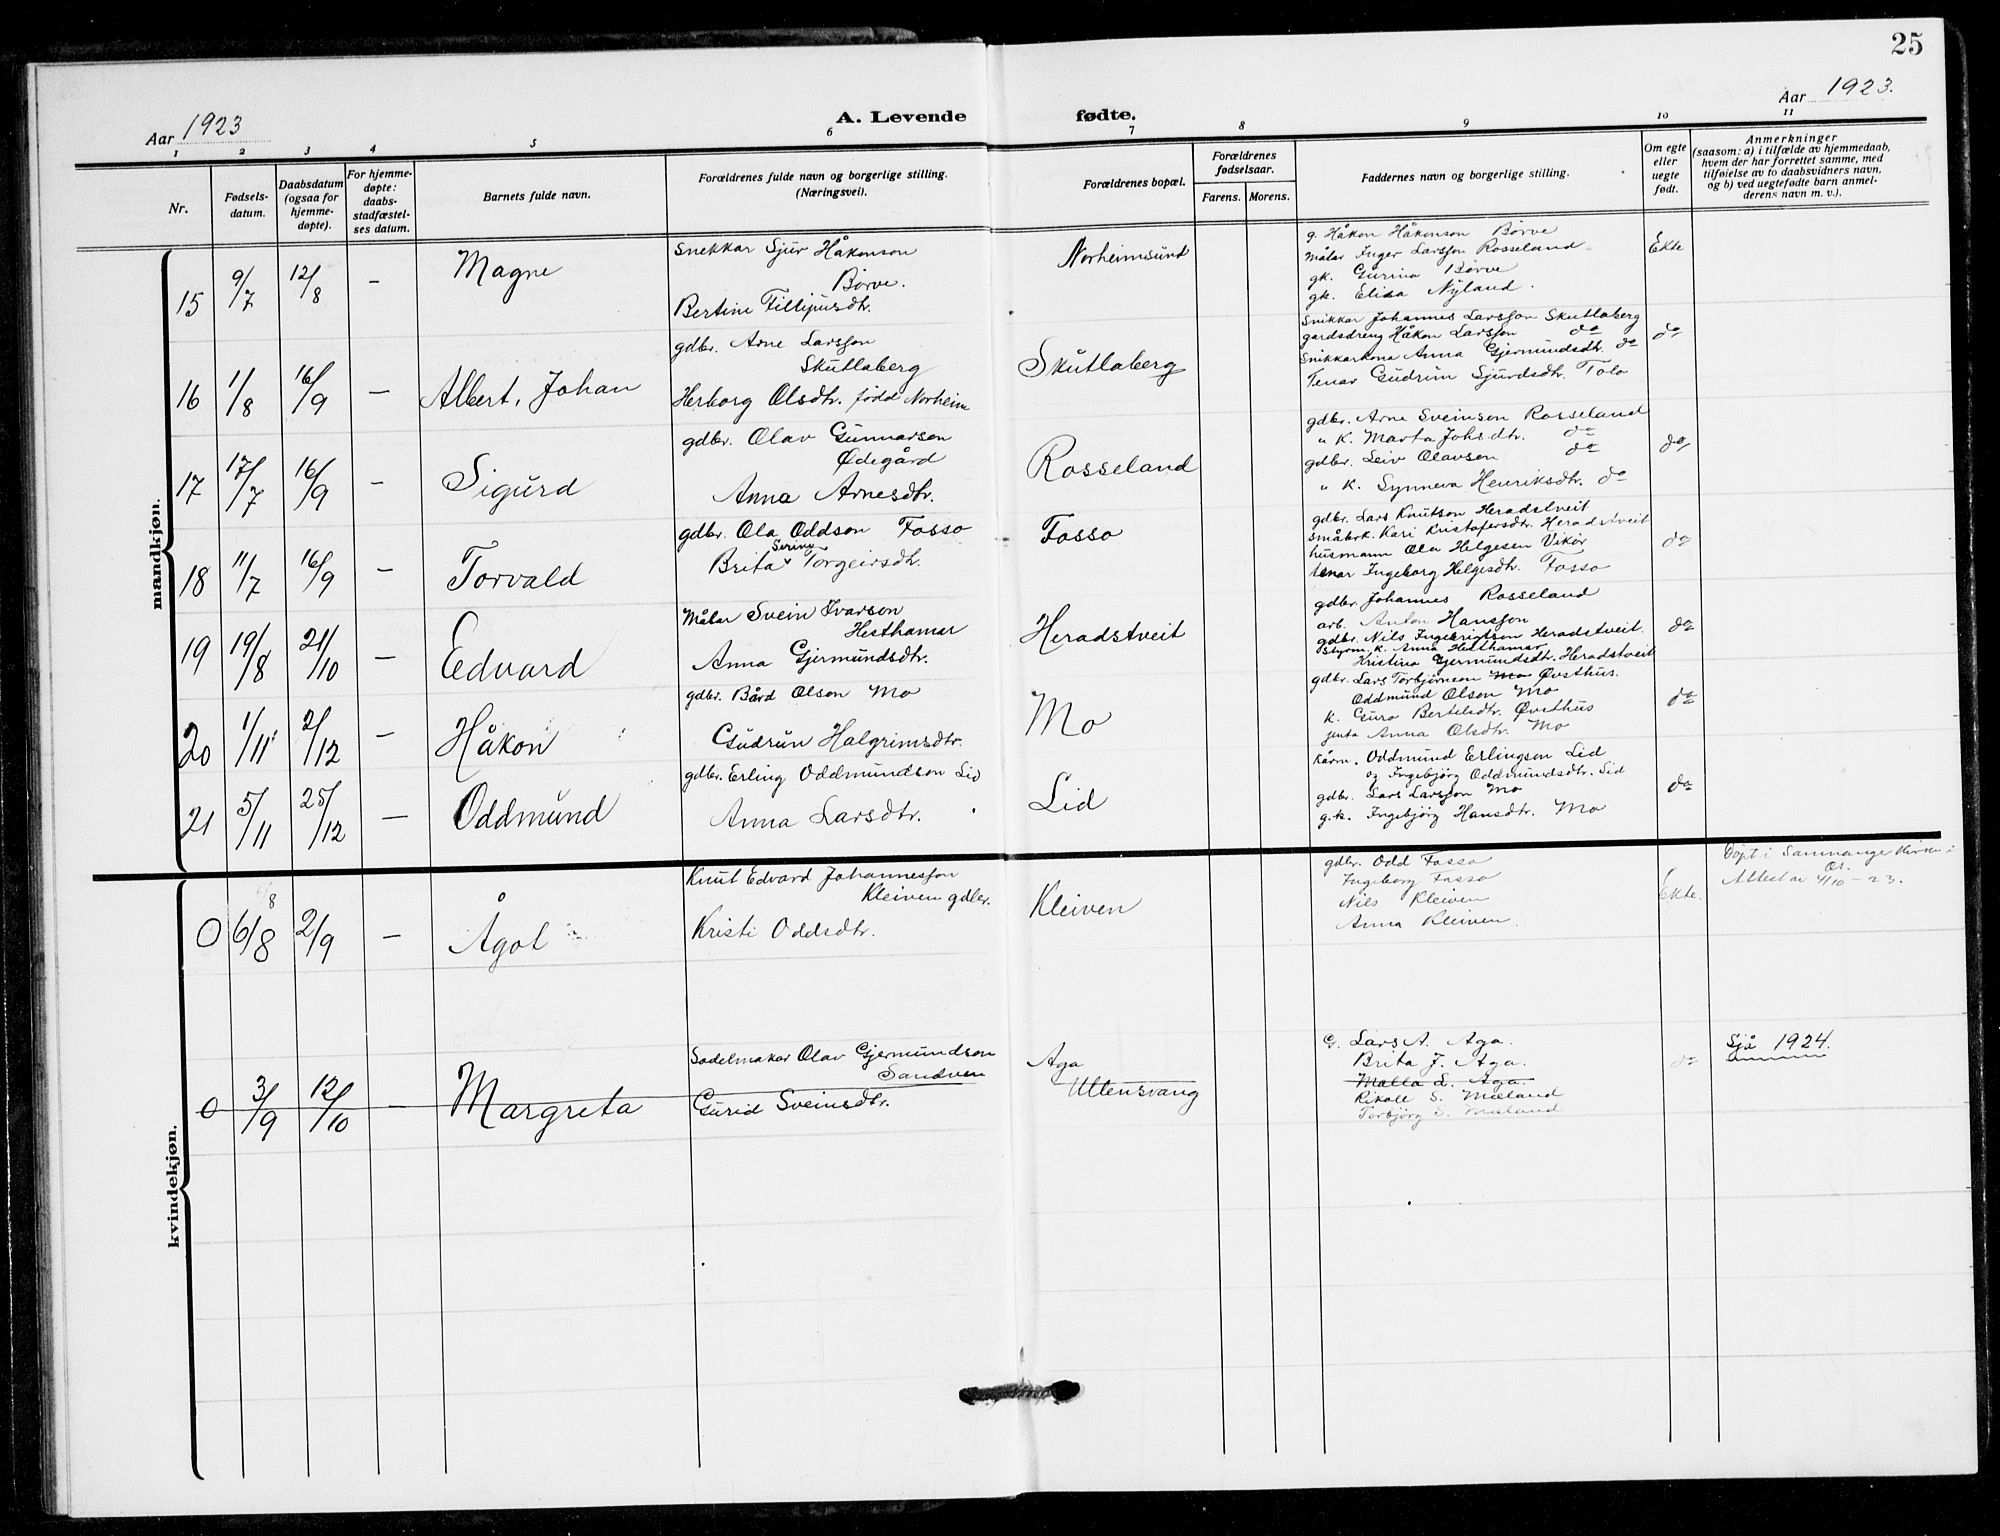 25
Aar 1923
A. Levende fødte.
Aar 1923.
1 2 3 4 5 6 7 8 9 10 11
Nr.
Fødsels-
datum.
Daabsdatum
(ogsaa for
hjemme-
døpte).
For hjemme-
døpte:
daabs-
stadfæstel-
ses datum.
Barnets fulde navn.
Forældrenes fulde navn og borgerlige stilling.
(Næringsvei).
Forældrenes bopæl.
Forældrenes
fødselsaar.
Farens. Morens.
Faddernes navn og borgerlige stilling.
Om egte
eller
uegte
født.
Anmerkninger
(saasom: a) i tilfælde av hjemmedaab,
hvem der har forrettet samme, med
tilføielse av to daabsvidners navn,
og b) ved uegtefødte barn anmel-
derens navn m. v.).
mandkjøn.
15 9/7 12/8 - Magne
Snekkar Sjur Håkonson
Børve.
Bertine Fillipusdtr.
Norheimsund
g. Håkon Håkonson Børve
Målar Inger Larsson Rosseland
gk. Gurina Børve
gk. Elisa Nyland.
Ekte
16 1/8 16/9 - Albert, Johan
gdbr. Arne Larsson
Skutlaberg
Herborg Olsdtr. född Norheim
Skutlaberg
Snikkar Johannes Larsson Skutlaberg
gardsdreng Håkon Larsson do
Snikkarkona Anna Gjermundsdtr. do
Tenar Gudrun Sjurdsdtr. Tolo
do
17 17/7 16/9 - Sigurd
gdbr. Olav Gunnarson
Ødegård
Anna Arnesdtr.
Rosseland
gdbr. Arne Sveinson Rosseland
" K. Marta Johs.dtr. do
gdbr. Leiv Olavson do
" K. Synneva Henriksdtr. do
do
18 11/7 16/9 - Torvald
gdbr. Ola Oddson Fosso
Serine
Brita Torgeirsdtr.
Fosso
gdbr. Lars Knutson Heradstveit
Småbrk. Kari Kristofersdtr. Heradstveit
husmann Ola Helgesen Vikør
tenar Ingeborg Helgesdtr. Fosso
do
19 19/8 21/10 - Edvard
Målar Svein Ivarson
Hesthamar
Anna Gjermundsdtr.
Heradstveit
gdbr. Johannes Rosseland
arb. Anton Hansson
gdbr. Nils Ingebrigtson Heradstveit.
Styrm. K. Anna Hesthamar
Kristina Gjermundsdtr. Heradstveit
do
20 1/11 2/12 - Håkon
gdbr. Bård Olson Mo
Gudrun Halgrimsdtr.
Mo
gdbr. Lars Torbjørnson Mo Øvsthus.
Oddmund Olson Mo
K. Guro Bertelsdtr. Øvsthus
jenta Anna Olsdtr. Mo
do
21 5/11 25/12 - Oddmund
gdbr. Erling Oddmundson Lid
Anna Larsdtr.
Lid
Kårm. Oddmund Erlingson Lid
og Ingebjørg Oddmundsdtr. Lid
gdbr. Lars Larsson Mo
g.k. Ingebjørg Hansdtr. Mo
do
kvindekjøn.
0 6/8 2/9 - Ågot
Knut Edvard Johannesson
Kleiven gdbr.
Kristi Oddsdtr.
Kleiven
gdbr. Odd Fosso
Ingeborg Fosso
Nils Kleiven
Anna Kleiven.
Ekte.
Döpt i Samnanger Kirke i
Os.
Attest av 4/10-23.
0 3/9 12/10 - Margreta
Sadelmakar Olav Gjermundson
Sandven
Gurid Sveinsdtr.
Aga
Ullensvang
G. Lars A. Aga.
Brita J. Aga.
Malla L. Aga.
Rikoll S. Mæland
Torbjørg S. Mæland
do
Sjå 1924.